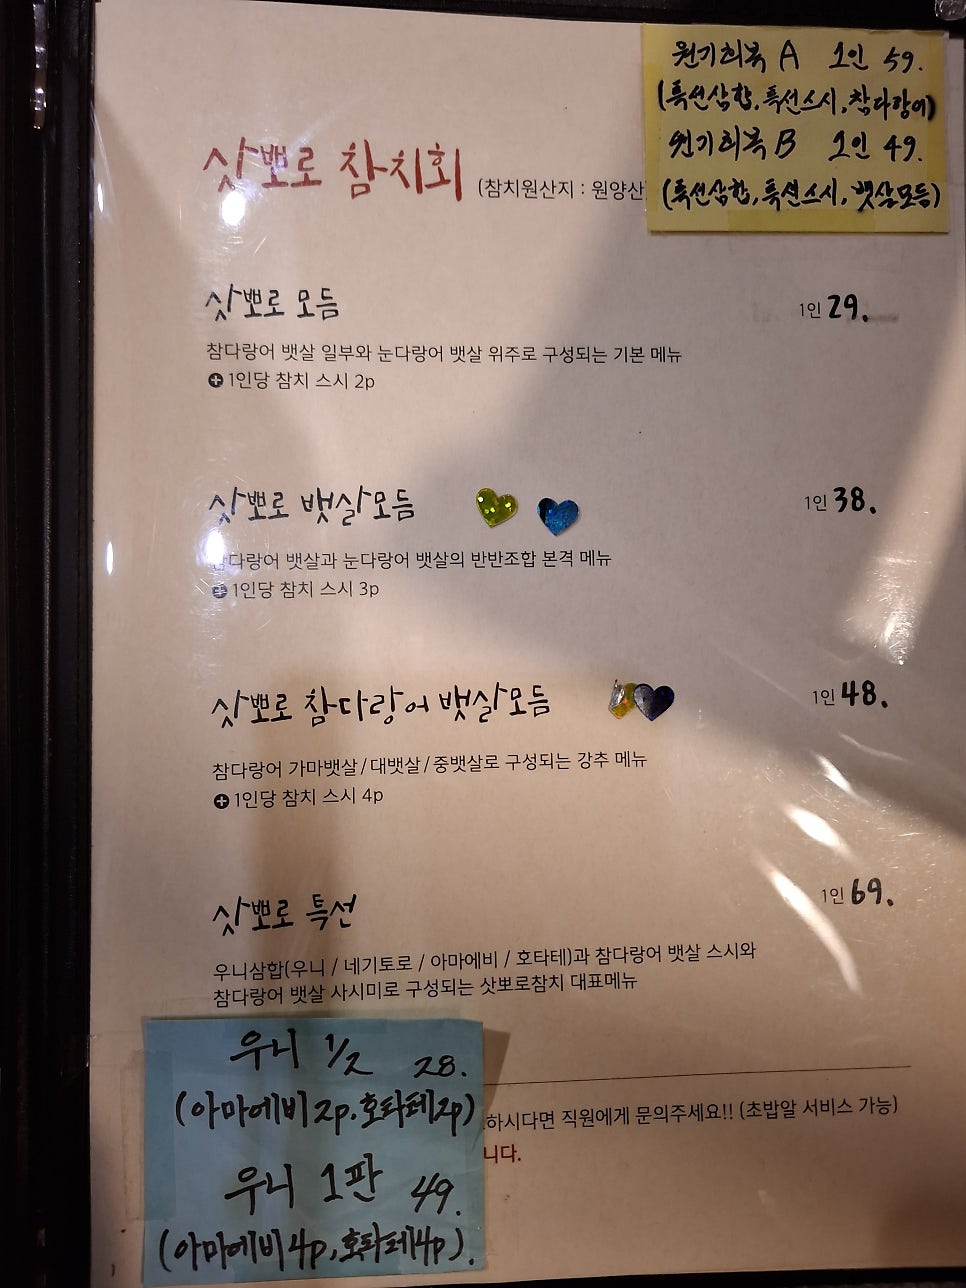 원기회복 A 1인 59.
(특선삼합, 특선스시, 참다랑어)
원기회복 B 1인 49.
(특선삼합, 특선스시, 뱃살모듬)
삿뽀로 참치회 (참치원산지 : 원양산
삿뽀로 모듬 1인 29.
참다랑어 뱃살 일부와 눈다랑어 뱃살 위주로 구성되는 기본 메뉴
+ 1인당 참치 스시 2p
삿뽀로 뱃살모듬 1인 38.
참다랑어 뱃살과 눈다랑어 뱃살의 반반조합 본격 메뉴
+ 1인당 참치 스시 3p
삿뽀로 참다랑어 뱃살모듬 1인 48.
참다랑어 가마뱃살/대뱃살/중뱃살로 구성되는 강추 메뉴
+ 1인당 참치 스시 4p
삿뽀로 특선 1인 69.
우니삼합(우니 / 네기토로 / 아마에비 / 호타테)과 참다랑어 뱃살 스시와
참다랑어 뱃살 사시미로 구성되는 삿뽀로참치 대표메뉴
우니 1/2 28.
(아마에비2p.호타테2p)
하시다면 직원에게 문의주세요!! (초밥알 서비스 가능)
니다.
우니 1판 49.
(아마에비4p,호타테4p).